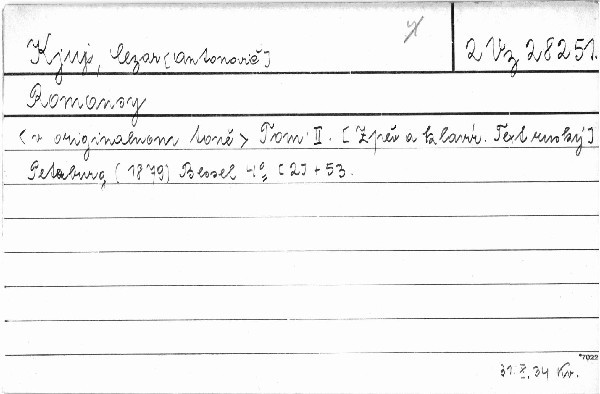 Kjuj, Cezar [Antonovič] 2 Vz 28251.
Romansy
<v originalnom toně> Tom II. [Zpěv a klavír. Text ruský]
Peterburg, (1879) Bessel 4° [2] + 53.
*7022
31. X. 34 Kv.